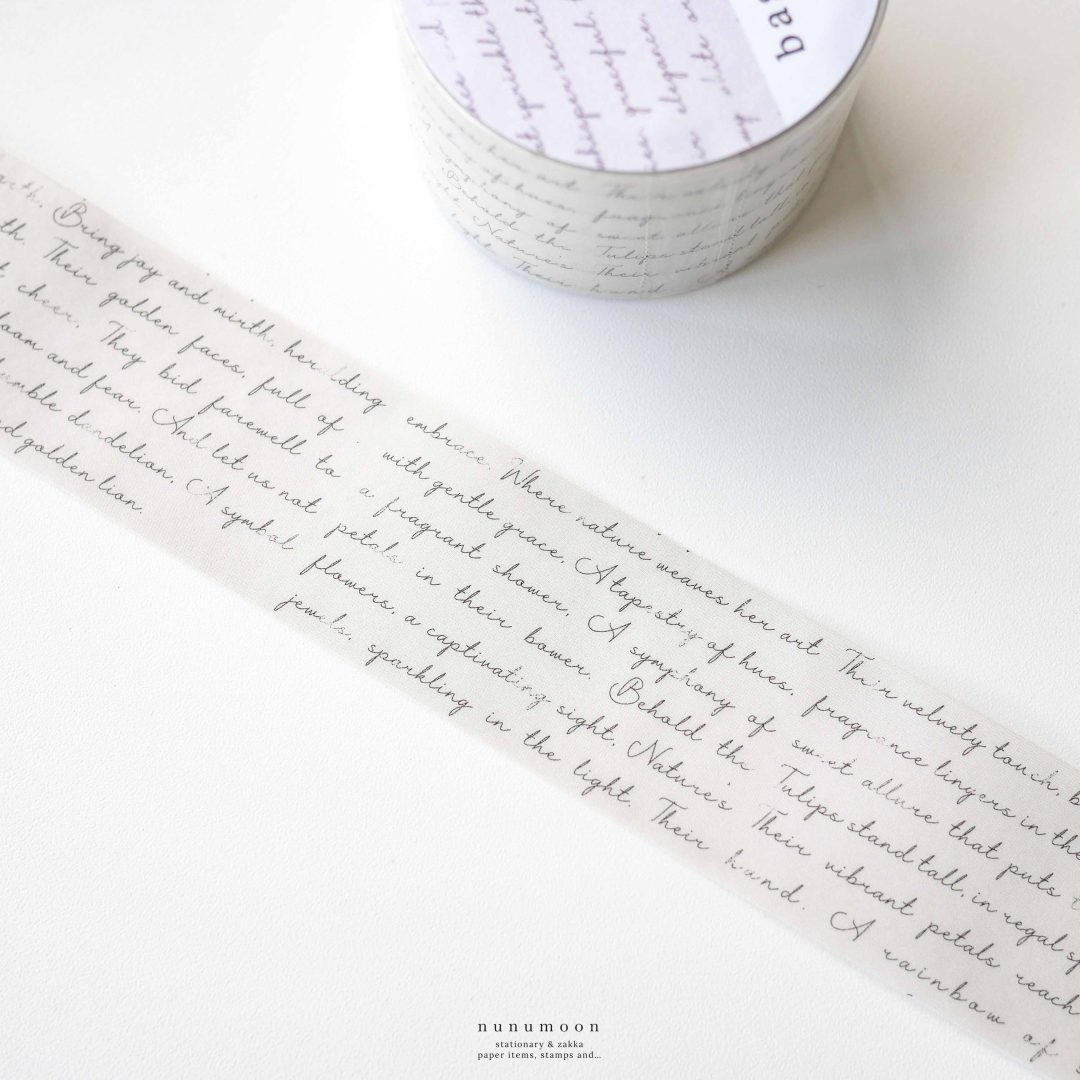 ba
elegance
her art
of sweet allure that
Behold the Tulips stand tall
Nature's Their
Their hand
Bring joy and mirth, heralding
Their golden faces, full of
cheer. They bid farewell to
and fear. And let us not
humble dandelion, A symbol
golden lion.
embrace. Where nature weaves her art Their velvety touch,
with gentle grace, A tapestry of hues, fragrance lingers in the
a fragrant shower, A symphony of sweet allure that puts
petals in their bower. Behold the Tulips stand tall, in regal
flowers, a captivating sight, Nature's Their vibrant petals reach
jewels, sparkling in the light. Their hand. A rainbow of
nunumoon
stationary & zakka
paper items, stamps and...